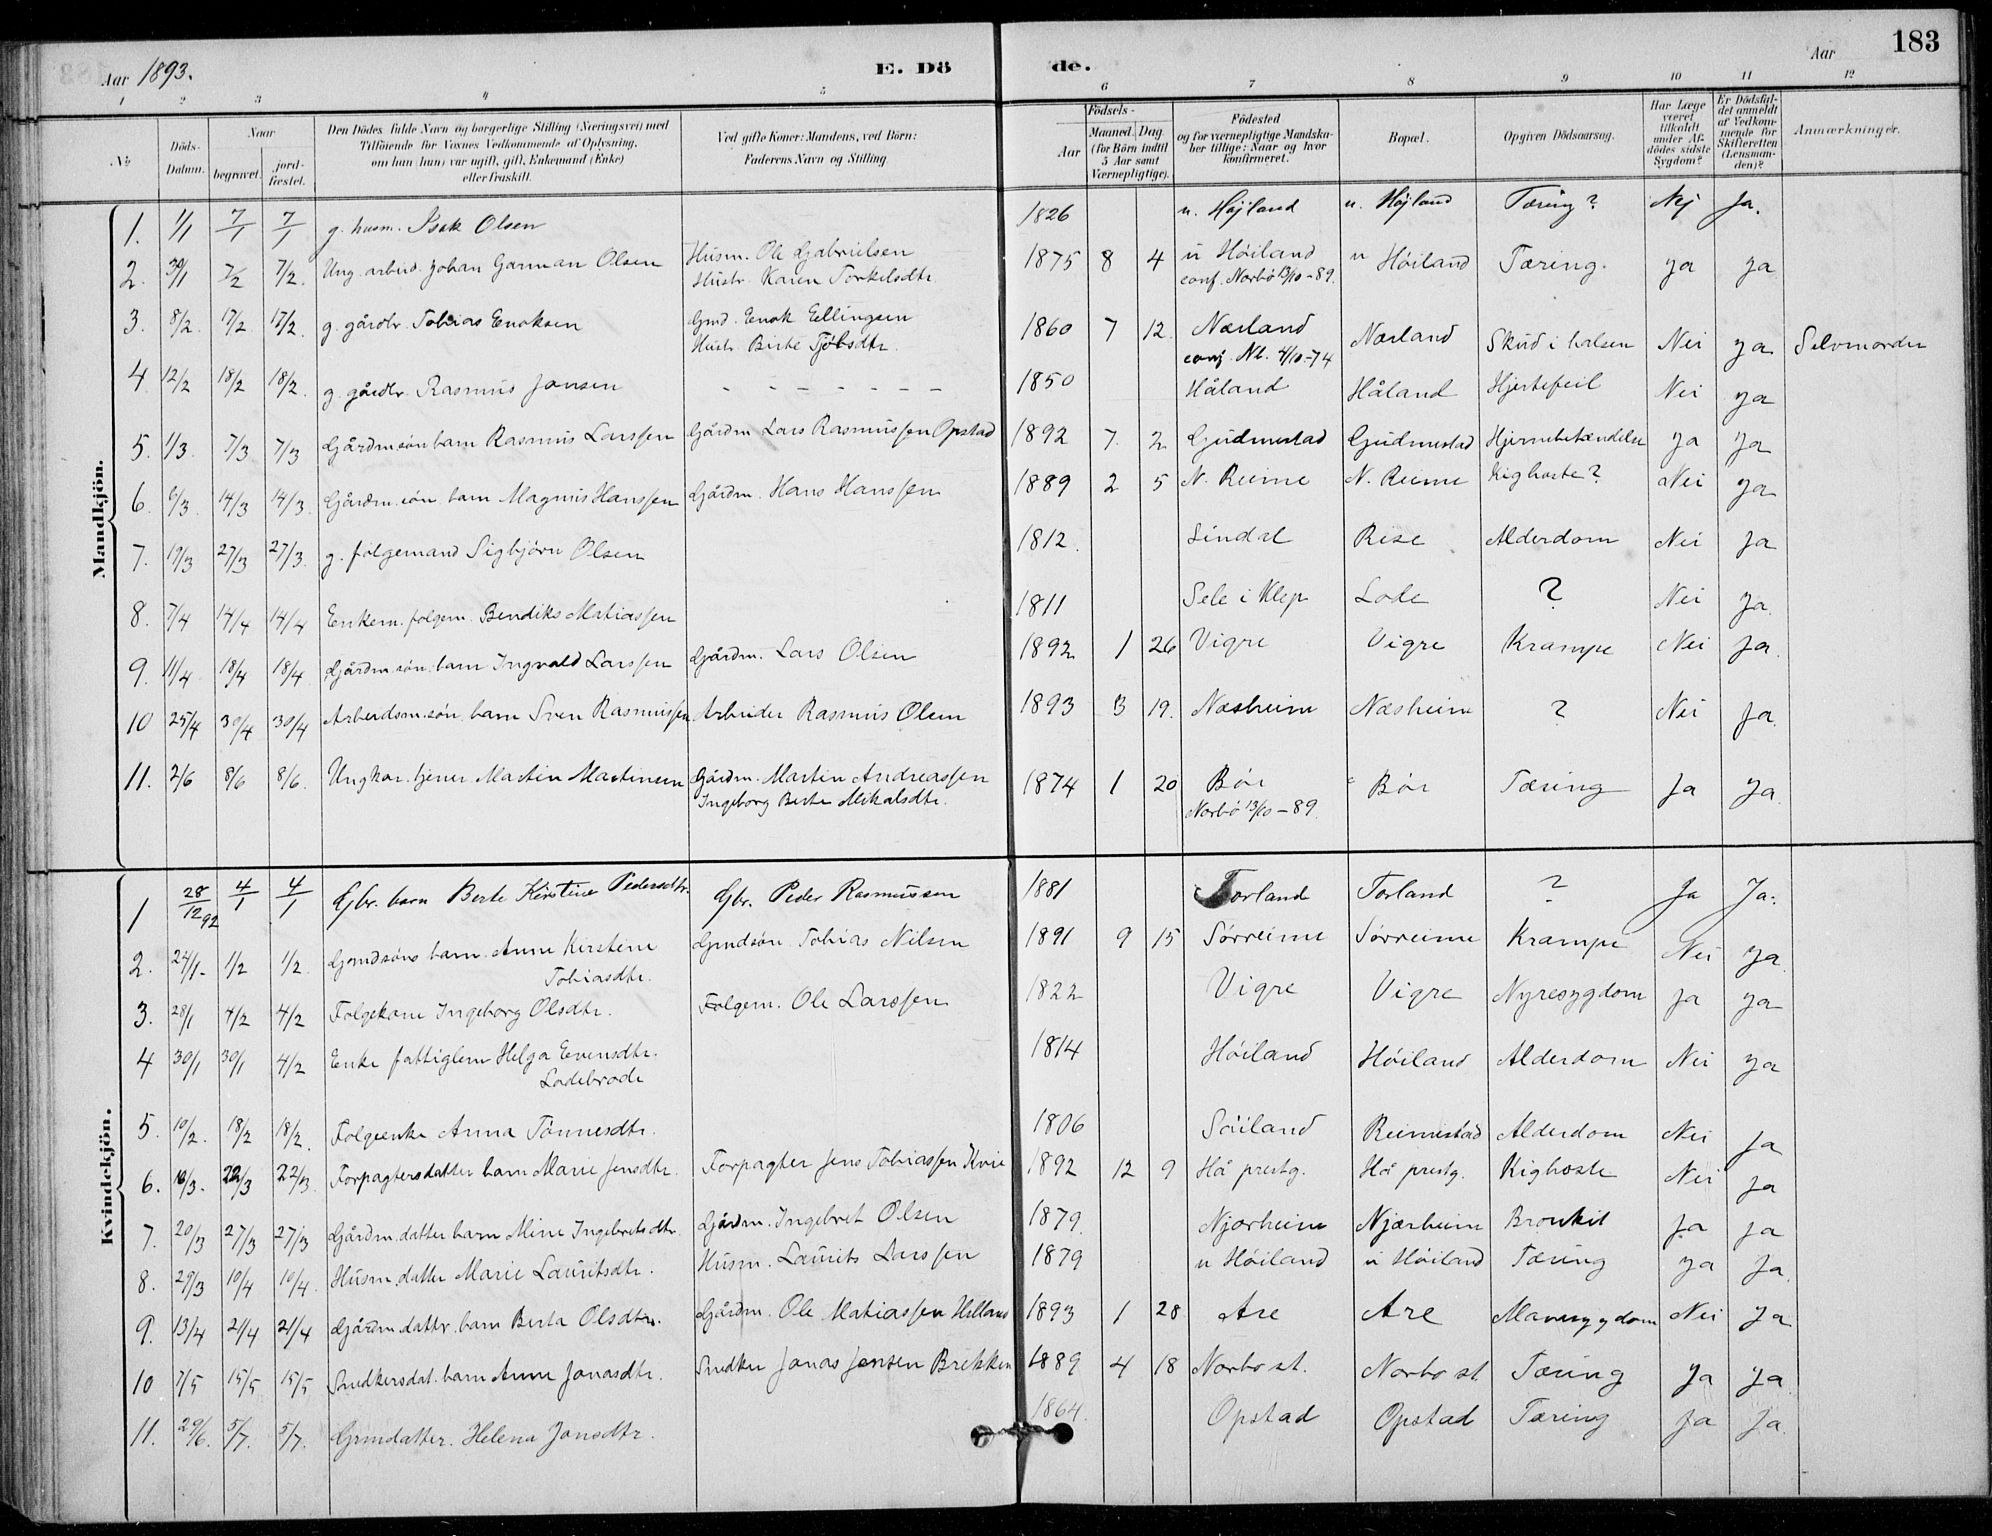 Aar 1893. E. Dö de. Aar 183
1 2 3 4 5 6 7 8 9 10 11 12
No
Döds-Datum.
Naar
begravet.
jord-fæstet.
Den Dödes fulde Navn og borgerlige Stilling (Næringsvei) med
Tilföiende for Voxnes Vedkommende af Oplysning,
om han (hun) var ugift, gift, Enkemand (Enke)
eller fraskilt.
Ved gifte Koner: Mandens, ved Börn:
Faderens Navn og Stilling
Födsels-
Aar
Maaned. Dag.
(for Börn indtil
5 Aar samt
Værnepligtige).
Födested
og for værnepligtige Mandska-
ber tillige: Naar og hvor
konfirmeret.
Bopæl.
Opgiven Dödsaarsag.
Har Læge
været
tilkaldt
under Af-
dödes sidste
Sygdom?
Er Dödsfal-
det anmeldt
af Vedkom-
mende for
Skifteretten
(Lensman-
den)?
Anmærkninger.
Mandkjön.
1. 1/1 7/1 7/1 g. husm. Isak Olsen 1826 u. Højland u. Højland Tæring? Nej Ja.
2. 30/1 7/2 7/2. Ung. arbeid. Johan Garman Olsen Husm. Ole Gabrielsen 1875 8 4 u Höiland u Höiland Tæring. ja ja
Hustr. Karen Torkelsdtr. conf. Narbö 13/10-89.
3. 8/2. 17/2 17/2. g. gårdbr. Tobias Enoksen Gmd. Enok Ellingsen 1860 7 12. Nærland Nærland Skud i halsen Nei ja Selvmorder
Hustr. Birte Tjölsdtr. conf. Nb. 4/10-74
4. 12/2 18/2 18/2. g. gårdbr. Rasmus Jansen - - - - - - - 1850 Håland Håland Hjertefeil Nei ja
5. 1/3. 7/3 7/3 Gårdm.sön barn Rasmus Larssen Gårdm. Lars Rasmussen Opstad 1892 7. 2 Gudmestad Gudmestad Hjernebetændelse ja ja
6. 6/3. 14/3 14/3. Gårdm. sön. barn Magnus Hanssen Gårdm. Hans Hanssen 1889 2 5 N. Reime N. Reime Kighoste? Nei ja
7. 19/3 27/3 27/3. g. fölgemand Sigbjörn Olsen 1812. Lindal Rise Alderdom Nei ja
8. 7/4 14/4 14/4 Enkem. folgem. Bendiks Matiassen 1811 Sele i Klep Lode ? Nei ja.
9. 11/4 18/4 18/4. Gårdm.sön. barn Ingvald Larssen Gårdm. Lars Olsen 1892 1 26 Vigre Vigre Krampe Nei ja.
10 25/4 30/4 30/4 Arbeidsm.sön. barn Sven Rasmussen Arbeider Rasmus Olsen 1893 3 19. Næsheim Næsheim ? Nei ja.
11. 2/6 8/6 8/6. Ungkar. tjener Martin Martinsen Gårdm. Martin Andreassen 1874 1 20 Bör Bör Tæring ja ja.
Ingeborg Berte Mikalsdtr. Narbö 13/10-89.
Kvindekjön.
1 28/12 92 4/1 4/1 Gbr. barn Berte Kirstine Pedersdtr. Gbr. Peder Rasmussen 1881 Torland Torland ? Ja Ja.
2. 24/1- 1/2 1/2. Gmdsöns barn. Anne Kirstine Gmdsön. Tobias Nilsen 1891 9 15 Sörreime Sörreime Krampe Nei ja.
Tobiasdtr.
3. 28/1 4/2 4/2 Folgekone Ingeborg Olsdtr. Folgem. Ole Larssen 1822 Vigre Vigre Nyresygdom ja ja
4 30/1 30/1 4/2 Enke fattiglem Helga Evensdtr. 1814 Höiland Höiland Alderdom Nei ja
Lodebrode
5. 10/2. 18/2 18/2. Folgeenke Anna Tönnesdtr. 1806 Söiland Reimestad Alderdom Nei ja
6. 16/3. 22/3 22/3. Forpagtersdatter barn Marie Jensdtr. Forpagter Jens Tobiassen Kvie 1892 12 9 Hå prestg. Hå prestg. Kighoste Nei ja
7. 20/3 27/3 27/3 Gårdm.datter barn Mine Ingebretsdtr. Gårdm. Ingebret Olsen 1879. Njærheim Njærheim Bronkit ja ja
8. 29/3 10/4 10/4. Husm. datter Marie Lauritsdtr. Husm. Laurits Larssen 1879 u Höiland u Höiland Tæring ja ja.
9. 13/4 21/4 21/4 Gårdm.dattr. barn Berta Olsdtr. Gårdm. Ole Matiassen Helland 1893 1 28 Are Are Mavesygdom Nei ja
10 7/5 15/5 15/5 Snedkersdat. barn Anne Jonasdtr. Snedker Jonas Jonsen Brekken 1889 4 18 Narbo st. Narbo st. Tæring ja ja.
11. 29/6. 5/7. 5/7. Grmdatter. Helena Jonsdtr. 1864. Opstad Opstad Tæring ja ja.